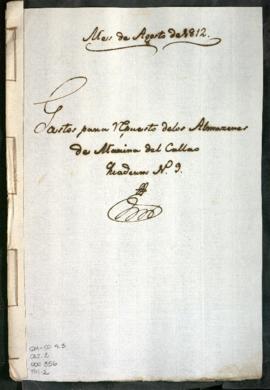 Mes de Agosto de 1812.
Gastos para repuesto de los Almazenes
de Marina del Callao
Quaderno N.º 9.
GM-CO 4.3
CAJ. 2
DOC 356